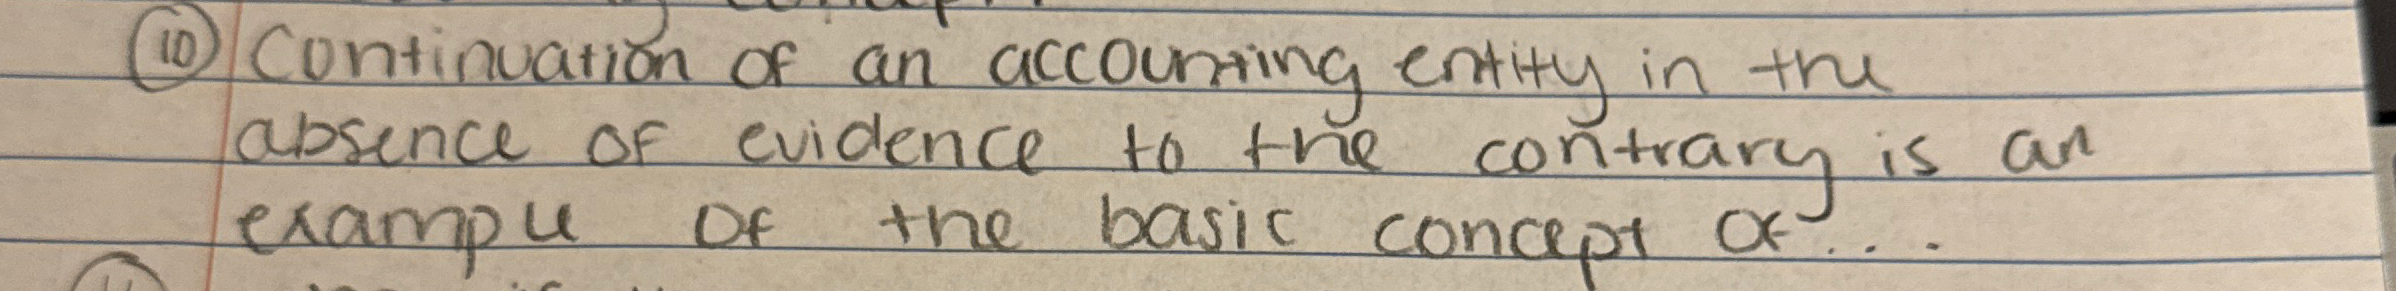 ⑩ Continuation of an accounting entity in the
absence of evidence to the contrary is an
example of the basic concept of...